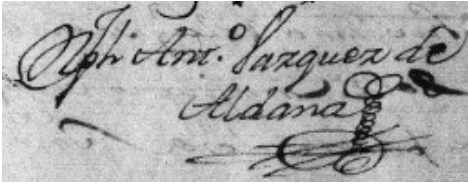 Jph Ant.º Vazquez de
Aldana